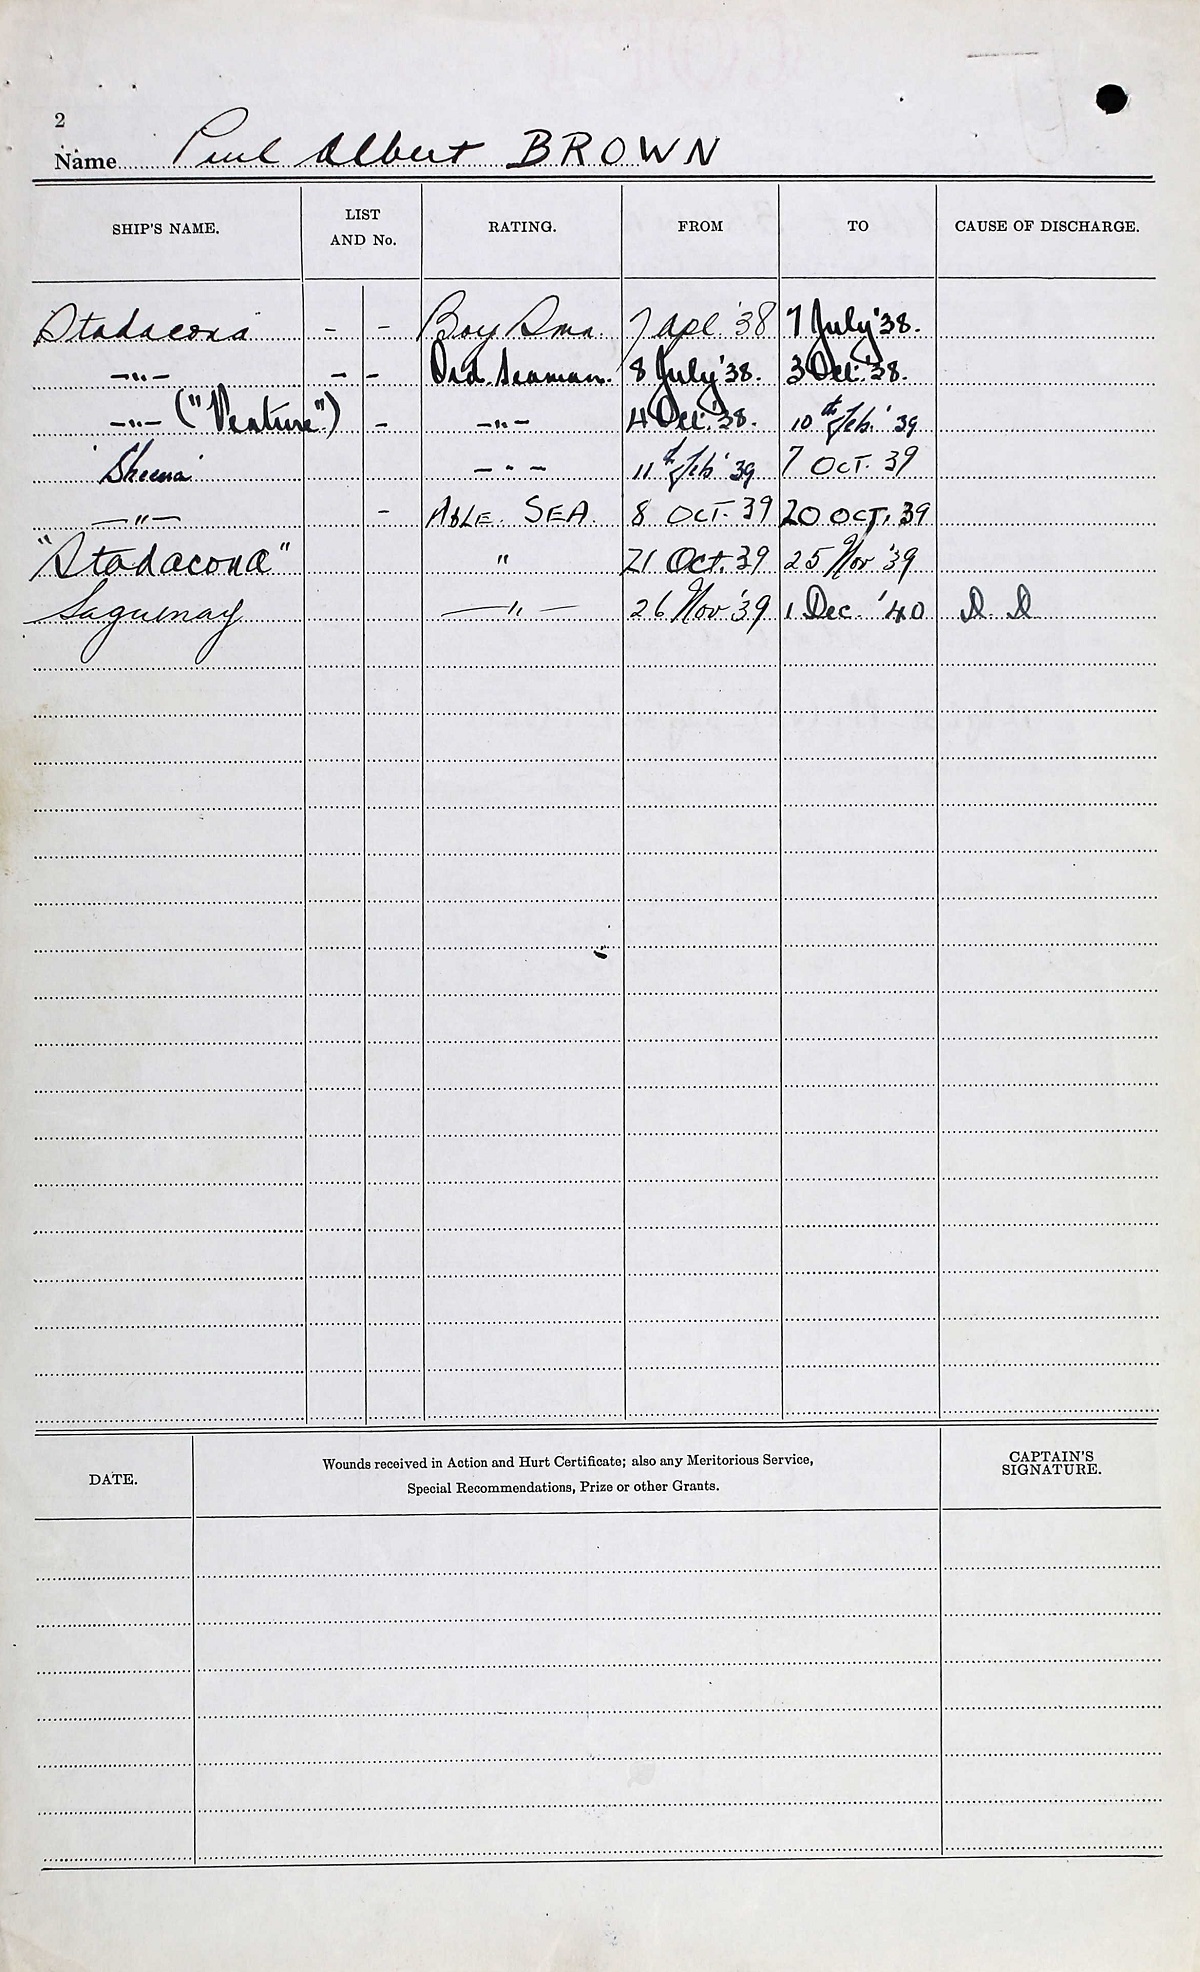 2
Name Paul Albert BROWN
SHIP'S NAME. LIST AND No. RATING. FROM TO CAUSE OF DISCHARGE.
Stadacona - - Boy Smn. 7 Apl. '38 7 July '38.
—"— - - Ord. Seaman. 8 July '38. 3 Dec. '38.
—"— ("Venture") - —"— 4 Dec. '38. 10th Feb. '39
'Skeena' —"— 11th Feb '39 7 OCT. 39
—"— - ABLE. SEA. 8 OCT. 39 20 OCT. 39
"Stadacona" " 21 Oct. 39 25 Nov '39
Saguenay —"— 26 Nov '39 1 Dec. '40 D. D
DATE. Wounds received in Action and Hurt Certificate; also any Meritorious Service, CAPTAIN'S
Special Recommendations, Prize or other Grants. SIGNATURE.